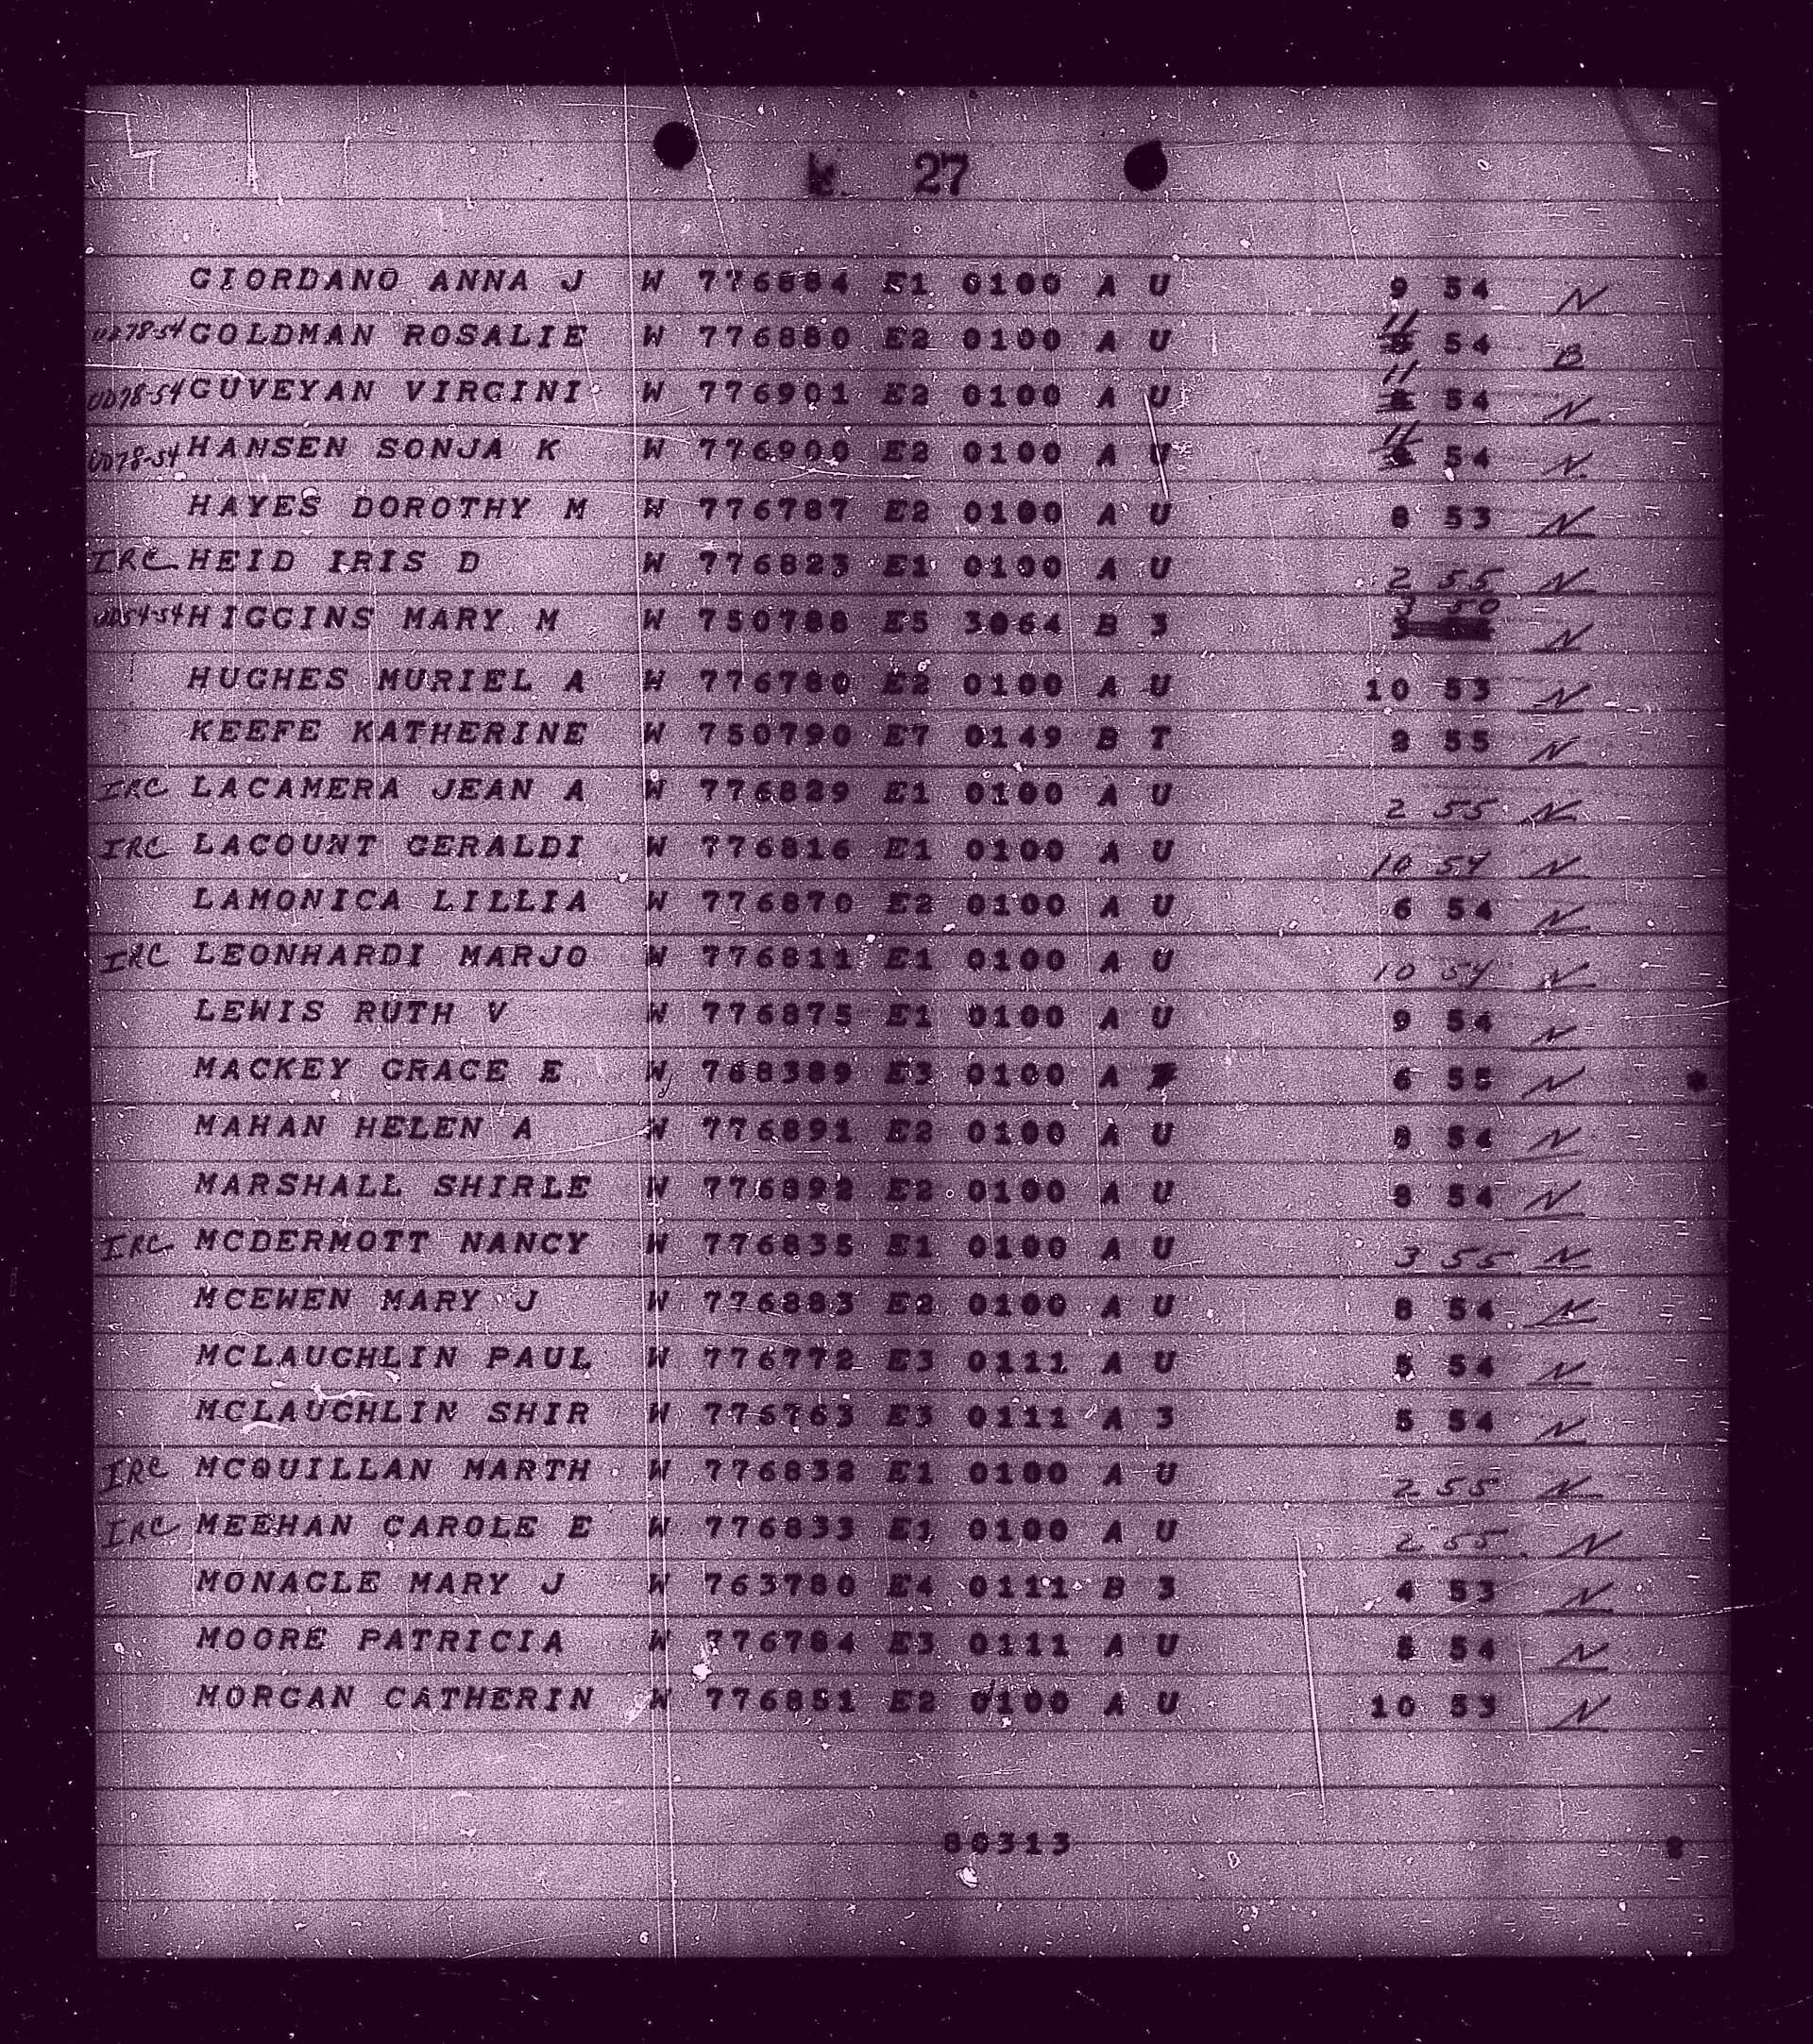 27
GIORDANO ANNA J W 776884 E1 0100 A U 9 54 N
UD78-54 GOLDMAN ROSALIE W 776880 E2 0100 A U 11 54 B
UD78-54 GUVEYAN VIRGINI W 776901 E2 0100 A U 11 8 54 N
UD78-54 HANSEN SONJA K W 776900 E2 0100 A U 11 54 N
HAYES DOROTHY M W 776787 E2 0100 A U 8 53 N
IRC HEID IRIS D W 776823 E1 0100 A U 2 55 N
UD54-54 HIGGINS MARY M W 750788 E5 3064 B 3 3 50 3 N
HUGHES MURIEL A W 776780 E2 0100 A U 10 53 N
KEEFE KATHERINE W 750790 E7 0149 B T 55 N
IRC LACAMERA JEAN A W 776829 E1 0100 A U 2 55 N
IRC LACOUNT GERALDI W 776816 E1 0100 A U 10 54 N
LAMONICA LILLIA W 776870 E2 0100 A U 6 54 N
IRC LEONHARDI MARJO W 776811 E1 0100 A U 10 54 N
LEWIS RUTH V W 776875 E1 0100 A U 9 54 N
MACKEY GRACE E W 768389 E3 0100 A 6 55 N
MAHAN HELEN A W 776891 E2 0100 A U 8 54 N
MARSHALL SHIRLE W 776892 E2 0100 A U 8 54 N
IRC MCDERMOTT NANCY W 776835 E1 0100 A U 3 55 N
MCEWEN MARY J W 776883 E2 0100 A U 8 54 N
MCLAUGHLIN PAUL W 776772 E3 0111 A U 5 54 N
MCLAUGHLIN SHIR W 776763 E3 0111 A 3 5 54 N
IRC MCQUILLAN MARTH W 776832 E1 0100 A U 2 55 N
IRC MEEHAN CAROLE E W 776833 E1 0100 A U 2 55 N
MONAGLE MARY J W 763780 E4 0111 B 3 4 53 N
MOORE PATRICIA W 776784 E3 0111 A U 54 N
MORGAN CATHERIN W 776851 E2 0100 A U 10 53 N
80313 2